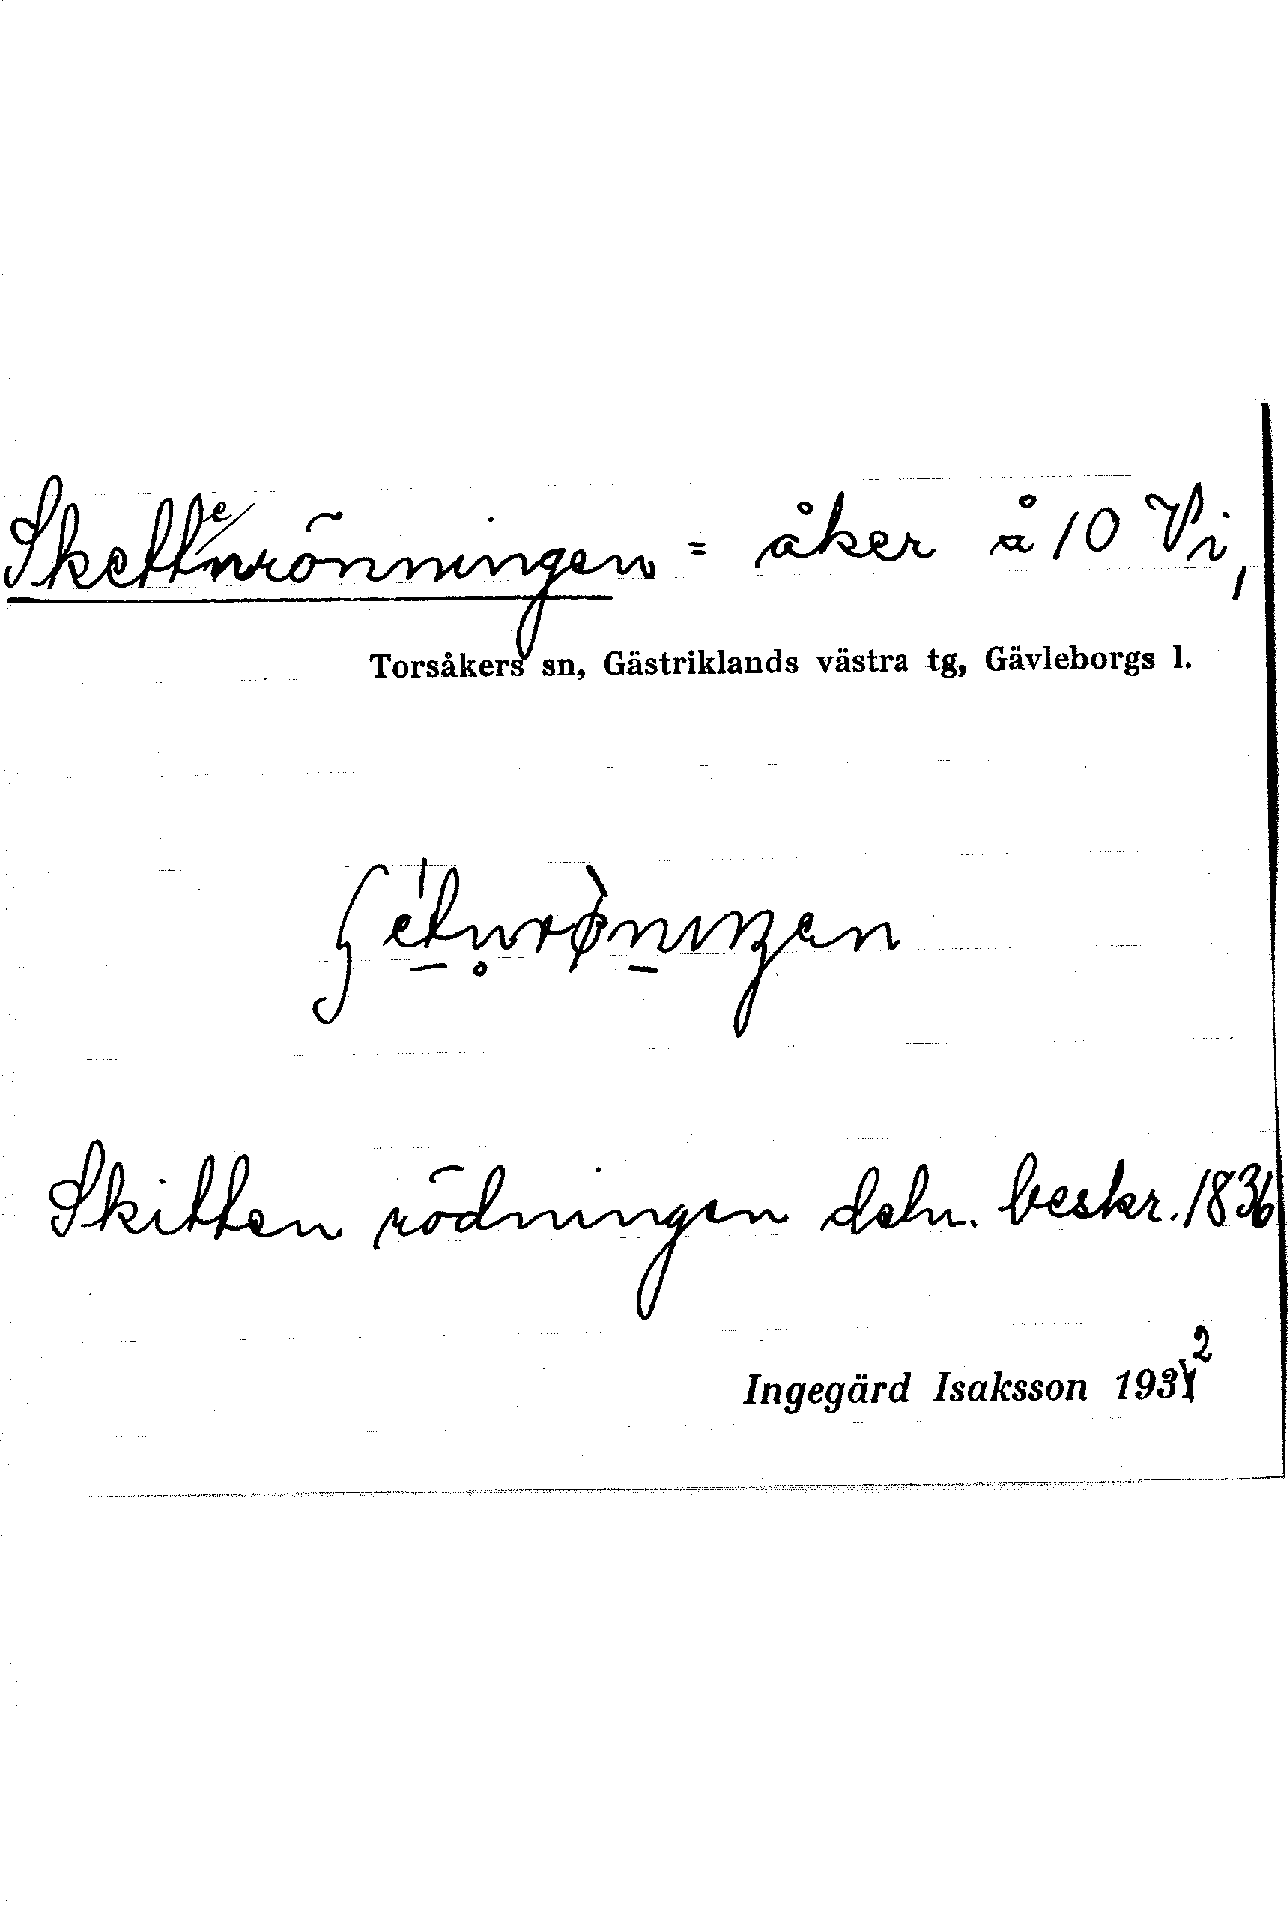 Skettenrönningen = åker å 10 Vi,
Torsåkers sn, Gästriklands västra tg, Gävleborgs l.
Skitten rödningen deln. beskr. 1836
Ingegärd Isaksson 1932